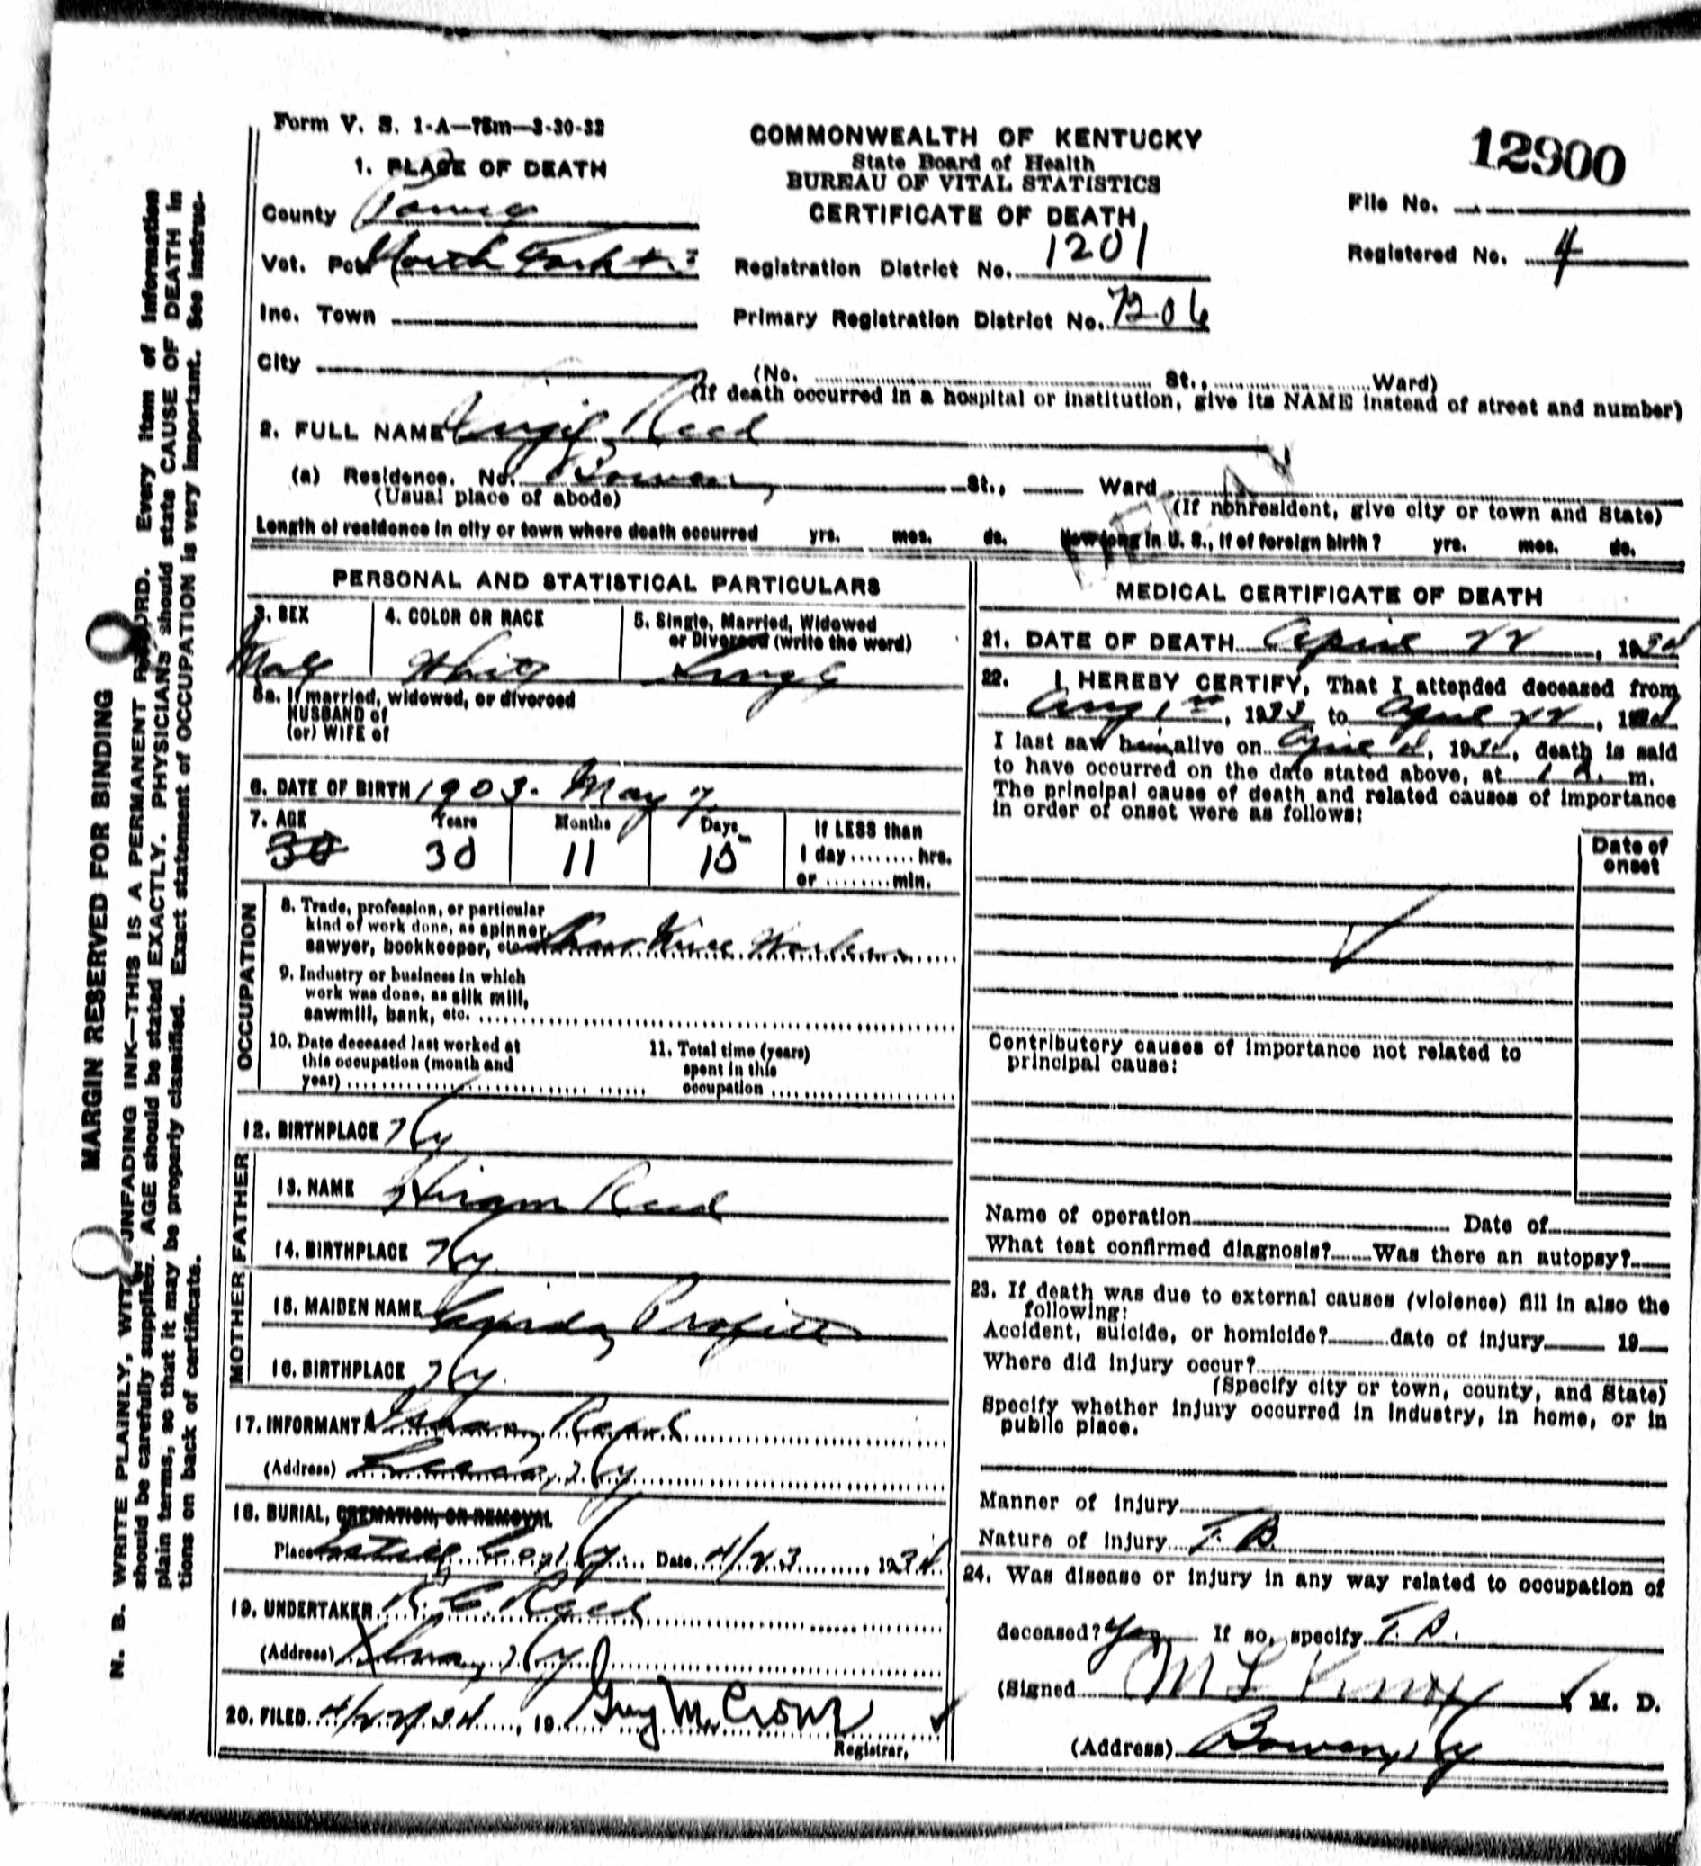 Form V. S. 1-A—75m—3-30-32
COMMONWEALTH OF KENTUCKY
State Board of Health
BUREAU OF VITAL STATISTICS
CERTIFICATE OF DEATH
12900
File No.
Registered No. 4
1. PLACE OF DEATH
County Powell
Vot. Pct North Fork
Inc. Town
City
Registration District No. 1201
Primary Registration District No. 7206
(No. St., Ward)
(If death occurred in a hospital or institution, give its NAME instead of street and number)
2. FULL NAME Virgil Reed
(a) Residence. No. Bowen, St., Ward
(Usual place of abode)
(If nonresident, give city or town and State)
Length of residence in city or town where death occurred yrs. mos. ds. How long in U. S., if of foreign birth? yrs. mos. ds.
PERSONAL AND STATISTICAL PARTICULARS
3. SEX
4. COLOR OR RACE
5. Single, Married, Widowed
or Divorced (write the word)
Male White Single
5a. If married, widowed, or divorced
HUSBAND of
(or) WIFE of
6. DATE OF BIRTH 1903. May 7
7. AGE Years Months Days
30 11 15
If LESS than
1 day ........ hrs.
or ........ min.
OCCUPATION
8. Trade, profession, or particular
kind of work done, as spinner,
sawyer, bookkeeper, etc. Worker
9. Industry or business in which
work was done, as silk mill,
sawmill, bank, etc.
10. Date deceased last worked at
this occupation (month and
year)
11. Total time (years)
spent in this
occupation
12. BIRTHPLACE Ky
FATHER
13. NAME Hiram Reed
14. BIRTHPLACE Ky
MOTHER
15. MAIDEN NAME Profitt
16. BIRTHPLACE Ky.
17. INFORMANT
(Address) Ky
18. BURIAL, CREMATION, OR REMOVAL
Place Estill Co, Ky. Date 4/23 1934.
19. UNDERTAKER R C Reed
(Address) Ky
20. FILED 19 Guy M. Crowe
Registrar.
MEDICAL CERTIFICATE OF DEATH
21. DATE OF DEATH April 22, 1934
22. I HEREBY CERTIFY, That I attended deceased from
Aug 1st, 1933 to April 22, 1934
I last saw him alive on April, 1934, death is said
to have occurred on the date stated above, at 1 A. m.
The principal cause of death and related causes of importance
in order of onset were as follows:
Date of
onset
Contributory causes of importance not related to
principal cause:
Name of operation Date of
What test confirmed diagnosis? Was there an autopsy?
23. If death was due to external causes (violence) fill in also the
following:
Accident, suicide, or homicide? date of injury 19
Where did injury occur?
(Specify city or town, county, and State)
Specify whether injury occurred in industry, in home, or in
public place.
Manner of injury
Nature of injury T. B.
24. Was disease or injury in any way related to occupation of
deceased? Yes If so, specify T. B.
(Signed M. D.
(Address) Bowen, Ky
MARGIN RESERVED FOR BINDING
N. B. WRITE PLAINLY, WITH UNFADING INK—THIS IS A PERMANENT RECORD. Every item of information
should be carefully supplied. AGE should be stated EXACTLY. PHYSICIANS should state CAUSE OF DEATH in
plain terms, so that it may be properly classified. Exact statement of OCCUPATION is very important. See instruc-
tions on back of certificate.